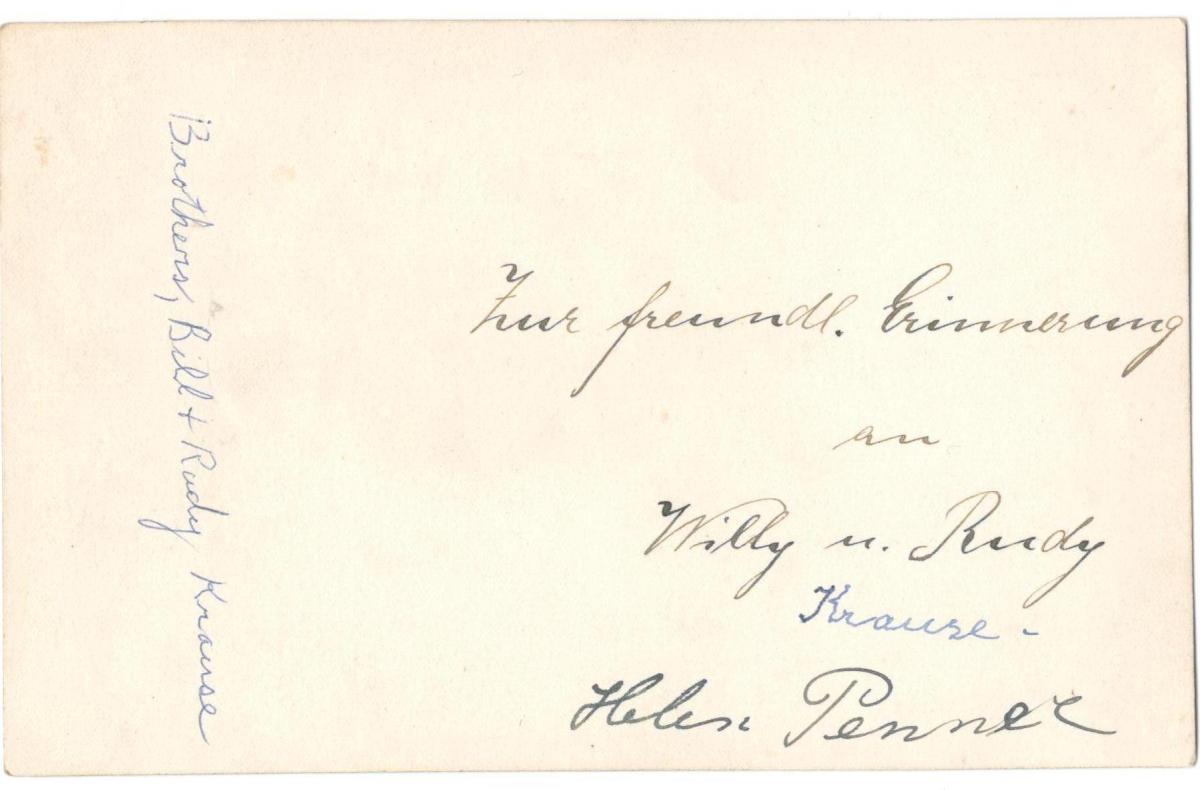 Zur freundl. Erinnerung
an
Willy u. Rudy
Krause -
Helen Penner
Brothers, Bill + Rudy Krause